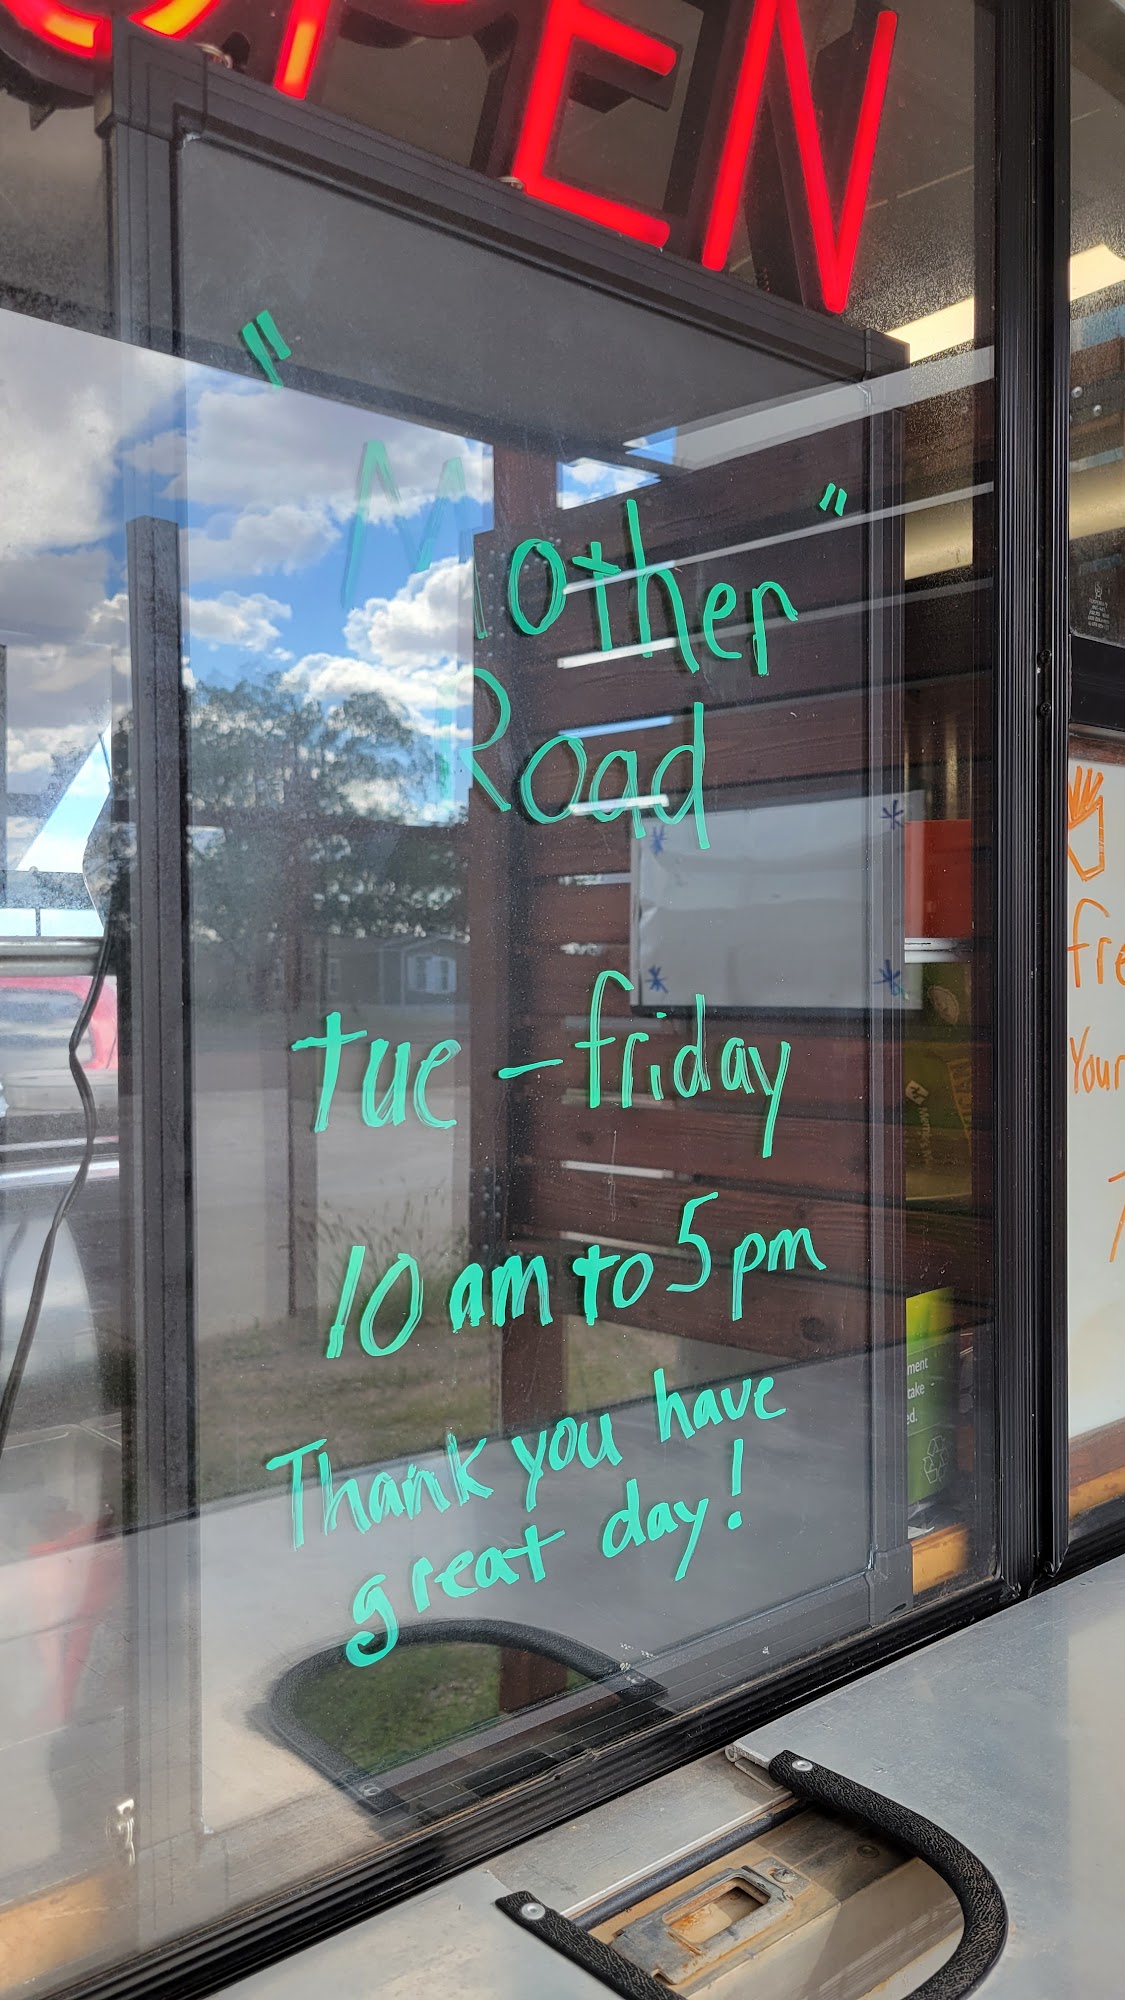 OPEN
"Mother"
Road
Tue - friday
10 am to 5 pm
Thank you have
great day!
fre
Your
ment
take
ed.